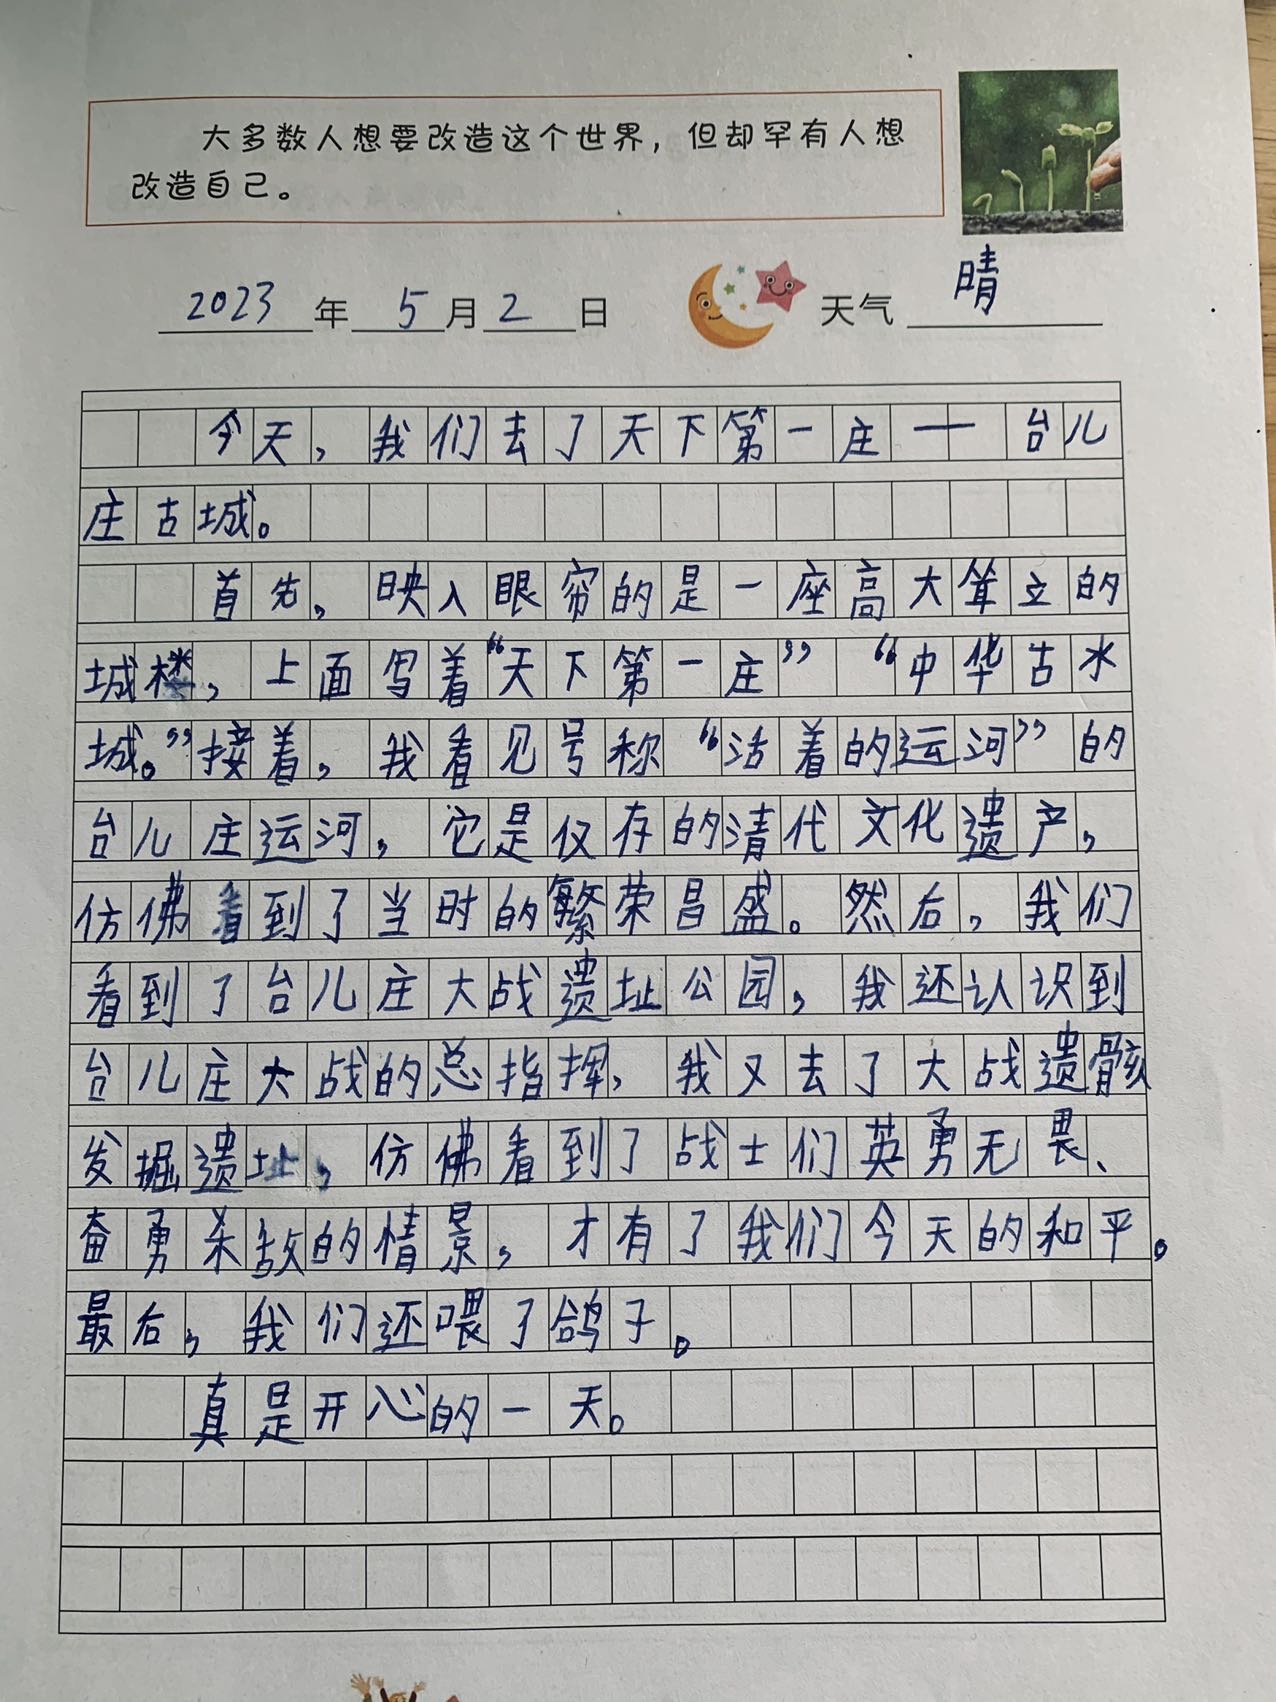 大多数人想要改造这个世界，但却罕有人想
改造自己。
2023年5月2日 天气 晴
今天，我们去了天下第一庄——台儿
庄古城。
首先，映入眼帘的是一座高大耸立的
城楼，上面写着“天下第一庄”“中华古水
城。”接着，我看见号称“活着的运河”的
台儿庄运河，它是仅存的清代文化遗产，
仿佛看到了当时的繁荣昌盛。然后，我们
看到了台儿庄大战遗址公园，我还认识到
台儿庄大战的总指挥，我又去了大战遗骸
发掘遗址，仿佛看到了战士们英勇无畏、
奋勇杀敌的情景，才有了我们今天的和平。
最后，我们还喂了鸽子。
真是开心的一天。